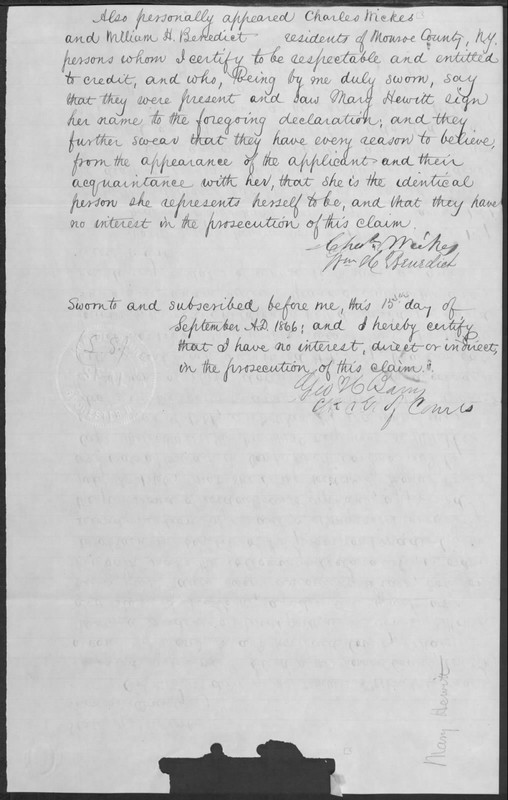 Also personally appeared Charles Wickes
and William H. Benedict residents of Monroe County, N.Y.
persons whom I certify to be respectable and entitled
to credit, and who, being by me duly sworn, say
that they were present and saw Mary Hewitt sign
her name to the foregoing declaration; and they
further swear that they have every reason to believe,
from the appearance of the applicant and their
acquaintance with her, that she is the identical
person she represents herself to be, and that they have
no interest in the prosecution of this claim.
Wm H Benedict
Sworn to and subscribed before me, this 15 day of
September A.D. 1866; and I hereby certify
that I have no interest, direct or indirect,
in the prosecution of this claim.
Geo H
Courts
Mary Hewitt